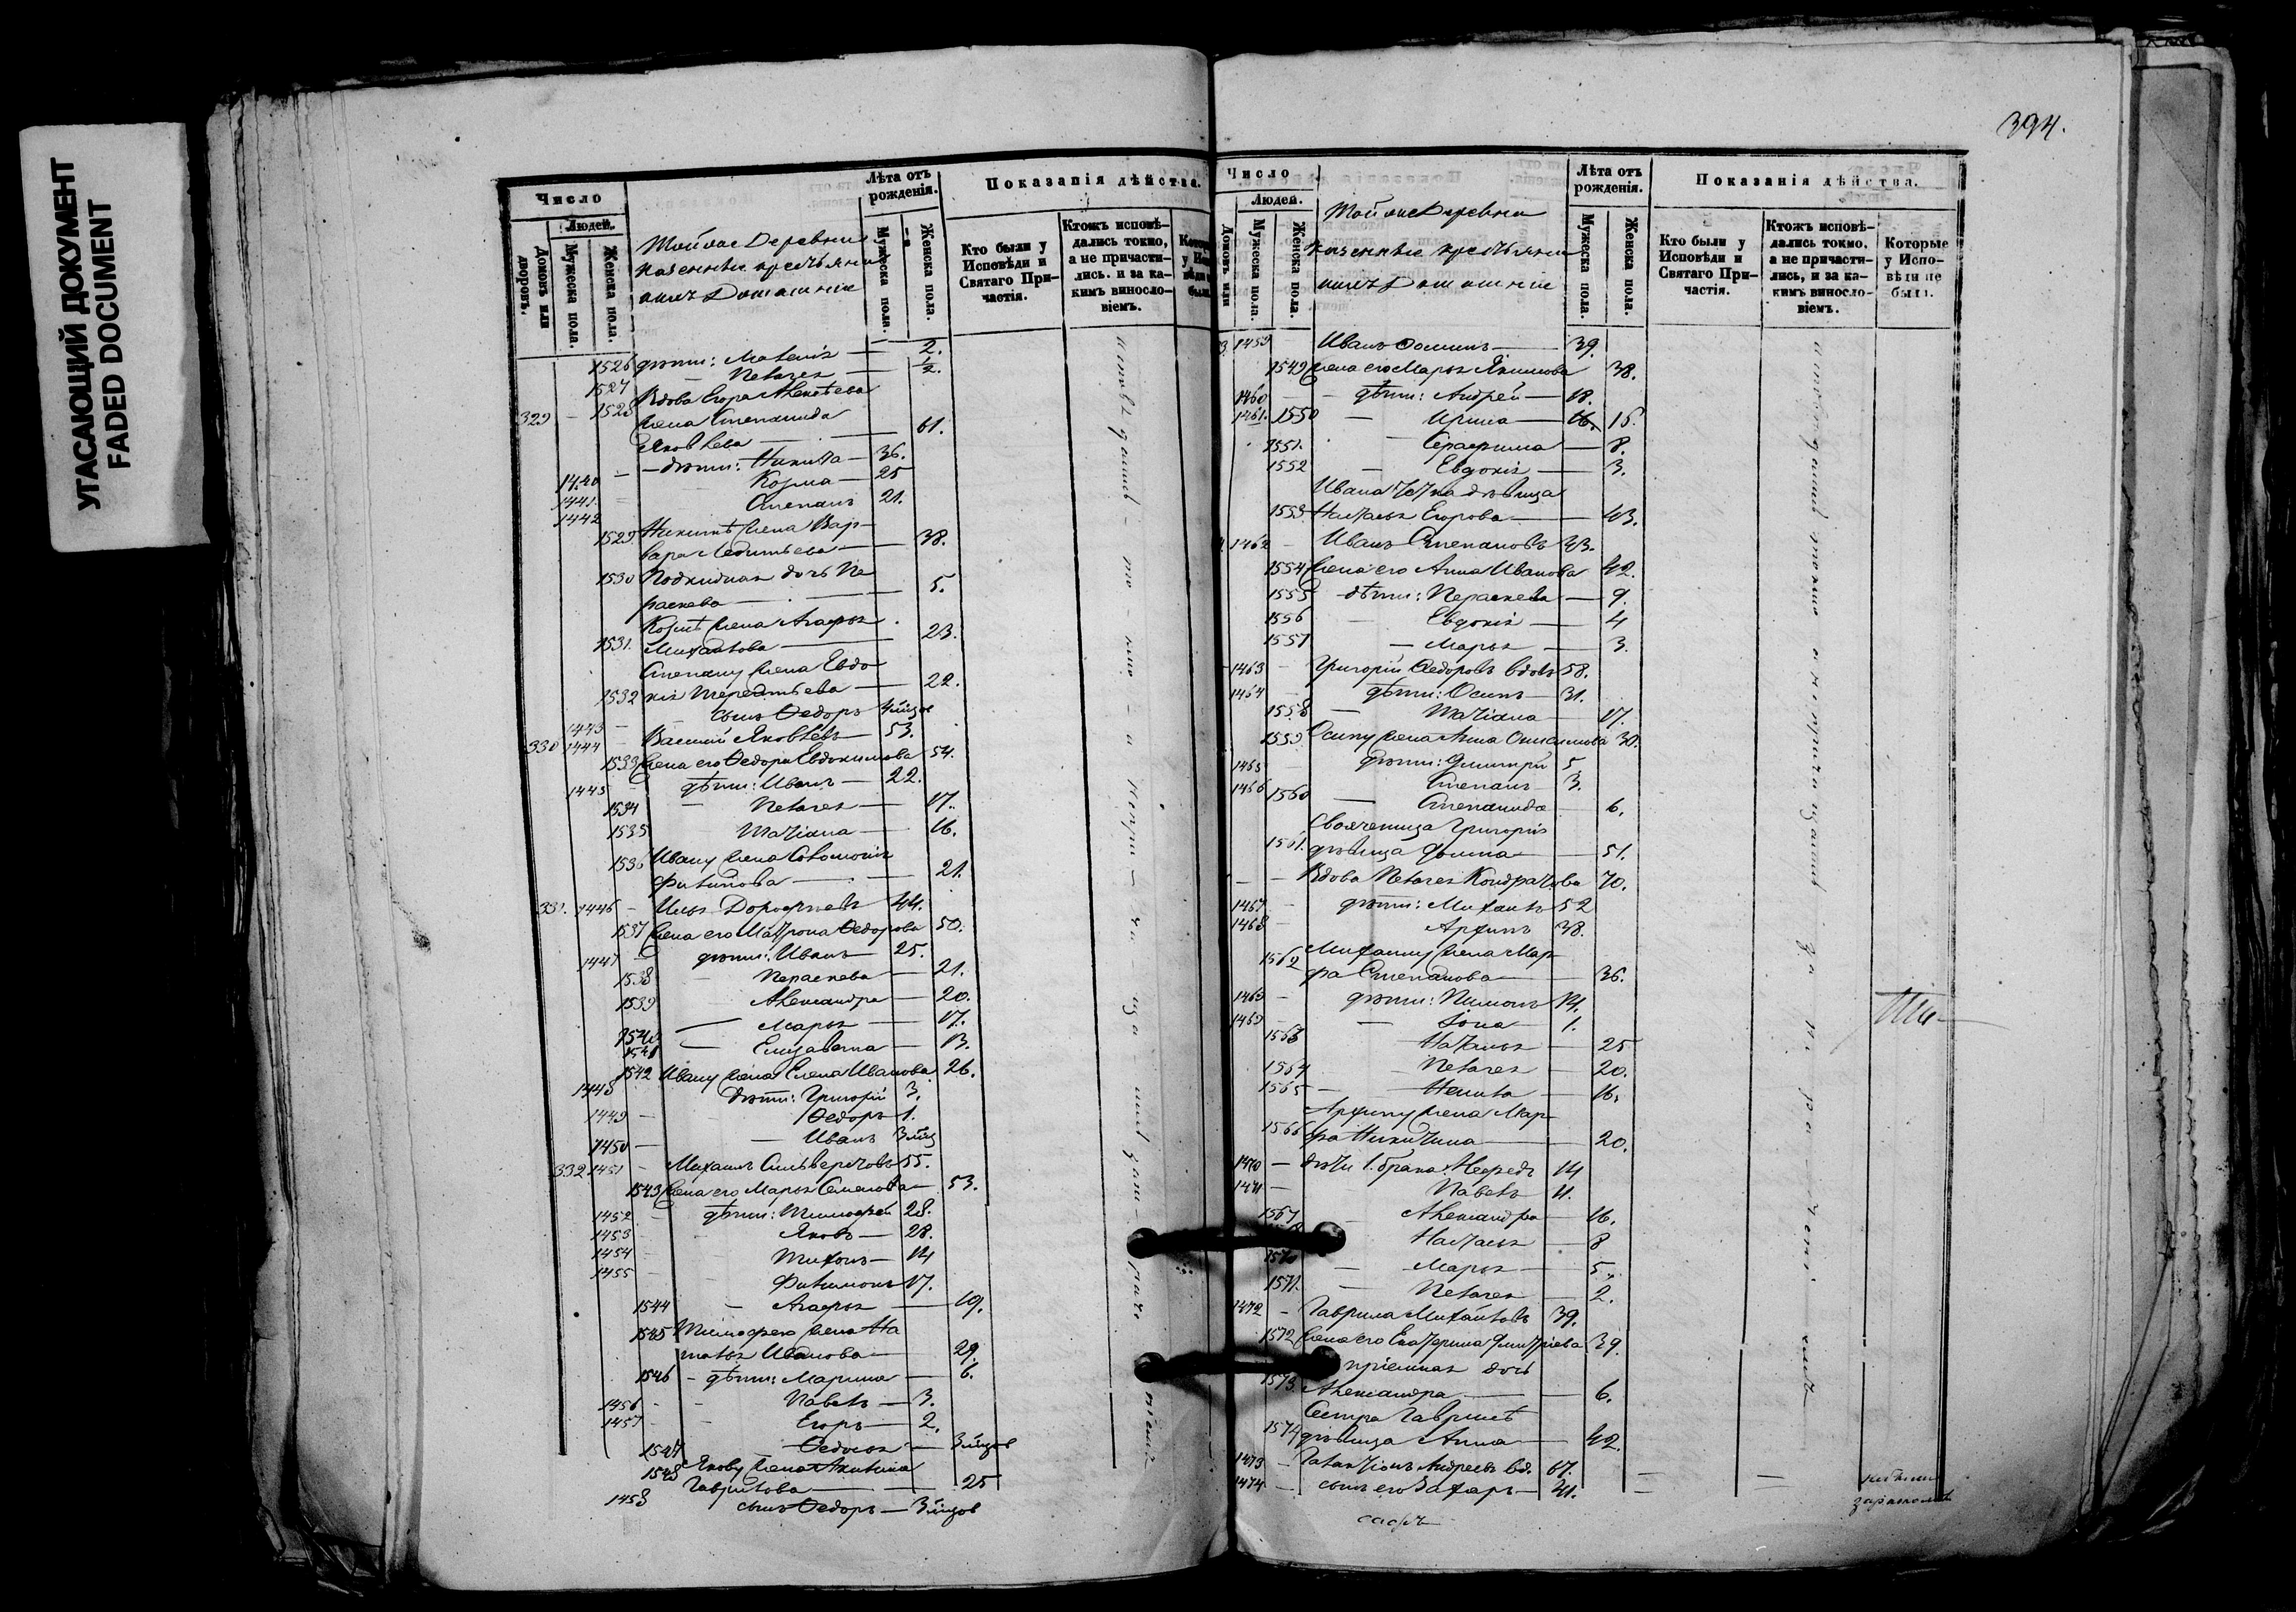 УГАСАЮЩИЙ ДОКУМЕНТ
FADED DOCUMENT
394.
Число
Людей.
Домовъ или дворовъ.
Мужеска пола.
Женска пола.
Тойже Деревни
казенные крестьяне
ихъ домашніе
Лѣта отъ рожденія.
Мужеска пола.
Женска пола.
Показанія дѣйства.
Кто были у Исповѣди и Святаго Причастія.
Ктожъ исповѣдались токмо, а не причастились. и за какимъ винословіемъ.
1526 дѣти: Маланія — 2.
1527 Пелагея — ½.
329 — 1528 Вдова Егора Алексѣева
жена Степанида
Яковлева — 61.
1440 — дѣти: Никита — 36.
1441 Козма — 25
1442 Степанъ 21.
1529 Никитѣ жена Вар-
вара Леонтьева — 38.
1530 Подкидная дочь Пе
раскева — 5.
Козмѣ жена Агафья
1531. Михайлова — 23.
Степану жена Евдо
1532 кія Терентьева — 22.
1443 — сынъ Ѳедоръ
330 1444 — Василій Яковлевъ — 53.
1533 Жена его Ѳедора Евдокимова 54.
1445 дѣти: Иванъ — 22.
1534 Пелагея — 17.
1535 Татіана — 16.
1536 Ивану жена Соломонія
Филипова — 21.
331. 1446 — Илья Дорофеевъ 44.
1537 Жена его Матрона Ѳедорова 50.
1447 — дѣти: Иванъ — 25.
1538 Пераскева — 21.
1539 Александра — 20.
1540 Марья — 17.
1541 Елизавета — 13.
1542 Ивану жена Елена Иванова 26.
1448 дѣти: Григорій 3.
1449 — Ѳедоръ 1.
1450 — Иванъ
332 1451 — Михаилъ Сильверстовъ 55.
1543 Жена его Марья Семенова — 53.
1452 — дѣти: Тимофей 28.
1453 — Яковъ — 28.
1454 — Тихонъ — 14
1455 — Филимонъ 17.
1544 — Агафья — 19.
1545 Тимофею жена На
талья Иванова — 29.
1546 — дѣти: Марина — 6.
1456 — Павелъ — 3.
1457 — Егоръ — 2.
1547 Ѳедосья —
1548 Якову жена Акилина
Гаврилова — 25
1458 сынъ Ѳедоръ —
Число
Людей.
Домовъ или
Мужеска пола.
Женска пола.
Тойже Деревни
казенные крестьяне
ихъ домашніе
Лѣта отъ рожденія.
Мужеска пола.
Женска пола.
Показанія дѣйства.
Кто были у Исповѣди и Святаго Причастія.
Ктожъ исповѣдались токмо, а не причастились, и за какимъ винословіемъ.
Которые у Исповѣди не были.
1459 Иванъ Фоминъ — 39.
1549 Жена его Марья Якимова 38.
1460 — дѣти: Андрей — 18.
1461. 1550 — Ирина — 16. 15.
1551. — Серафима — 8.
1552 — Евдокія — 3.
Ивана тетка дѣвица
1553 Наталья Егорова — 43.
1462 — Иванъ Степановъ 43.
1554 Жена его Анна Иванова 42.
1555 — дѣти: Пераскева — 9.
1556 Евдокія — 4
1557 — Марья — 3.
1463 — Григорій Ѳедоровъ вдовъ 58.
1464 дѣти: Осипъ — 31.
1558 — Татіана 17.
1559 Осипу жена Анна 30.
1465 дѣти: Дмитрій 5
1466 Степанъ 3.
1560 — Степанида 6.
Своячница Григорія
1561. дѣвица Фомина 51.
— Вдова Пелагея Кондратова 70.
1467 — дѣти: Михаилъ 52
1468 — Архипъ 38.
Михаилу жена Мар
1562 фа Степанова — 36.
1469 — дѣти: Пимонъ 14.
1469 — Іона 1.
1563 — Наталья — 25
1564 Пелагея — 20.
1565 — Ненила — 16.
Архипу жена Мар
1566 фа Никитина — 20.
1470 — дѣти 1. брака: Мефедъ 14
1471 — Павелъ 11.
1567 Александра — 16.
Настасья — 8
1570 — Марья — 5.
1571. — Пелагея — 2.
1472 — Гаврила Михайловъ 39.
1572 Жена его Екатерина Дмитріева 39.
пріемная дочь
1573 Александра — 6.
Сестра Гаврилѣ
1574 дѣвица Анна — 42.
1473 — Галактіонъ Андреевъ вд. 67.
1474 — сынъ его Захаръ — 41.